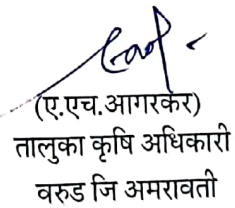 (ए.एच.आगरकर)
तालुका कृषि अधिकारी
वरुड जि अमरावती